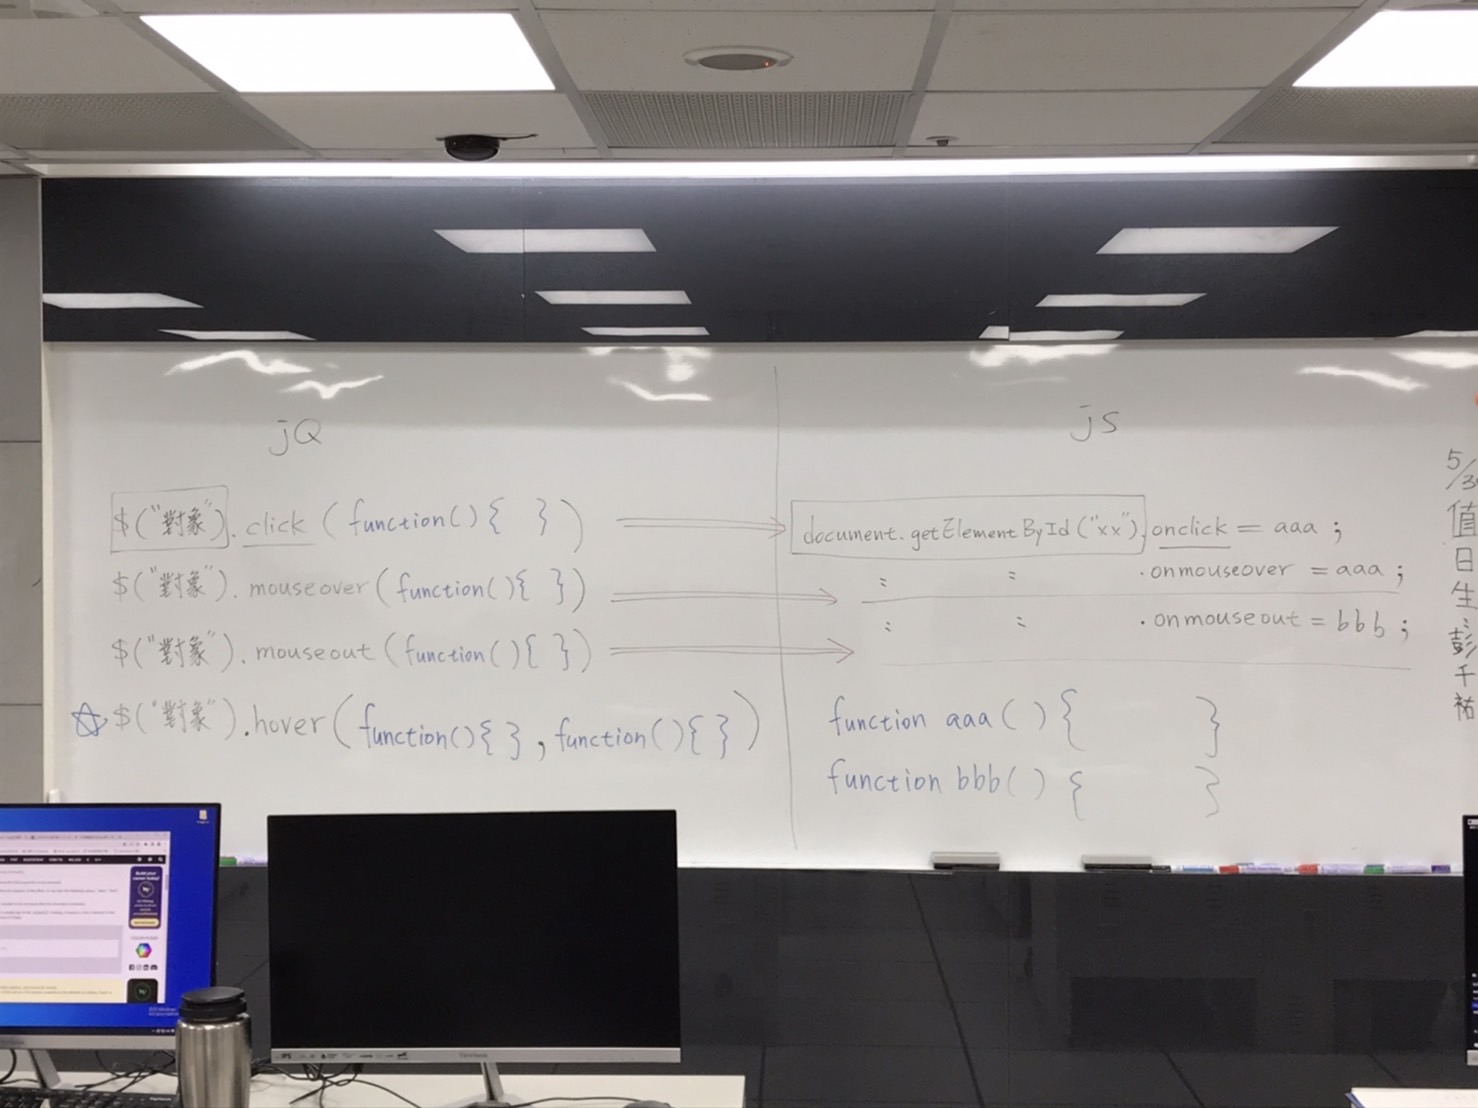 jQ
$("對象").click(function(){ })
$("對象").mouseover(function(){ })
$("對象").mouseout(function(){ })
☆$("對象").hover(function(){ }, function(){ })
jS
document.getElementById("xx").onclick = aaa;
: : .onmouseover = aaa;
: : .onmouseout = bbb;
function aaa(){ }
function bbb(){ }
值日生:彭千祐
ViewSonic